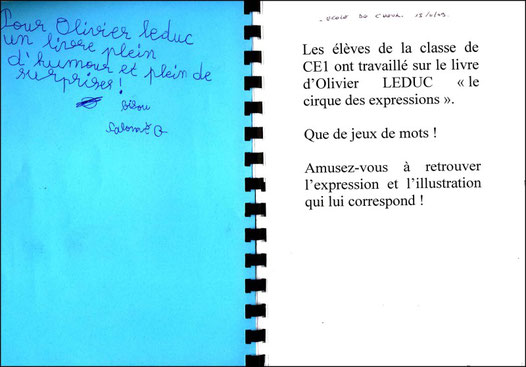 Pour Olivier Leduc
un livre plein
d'humour et plein de
surprises !
bisou
Salomé G
ECOLE DU
Les élèves de la classe de
CE1 ont travaillé sur le livre
d'Olivier LEDUC « le
cirque des expressions ».
Que de jeux de mots !
Amusez-vous à retrouver
l'expression et l'illustration
qui lui correspond !